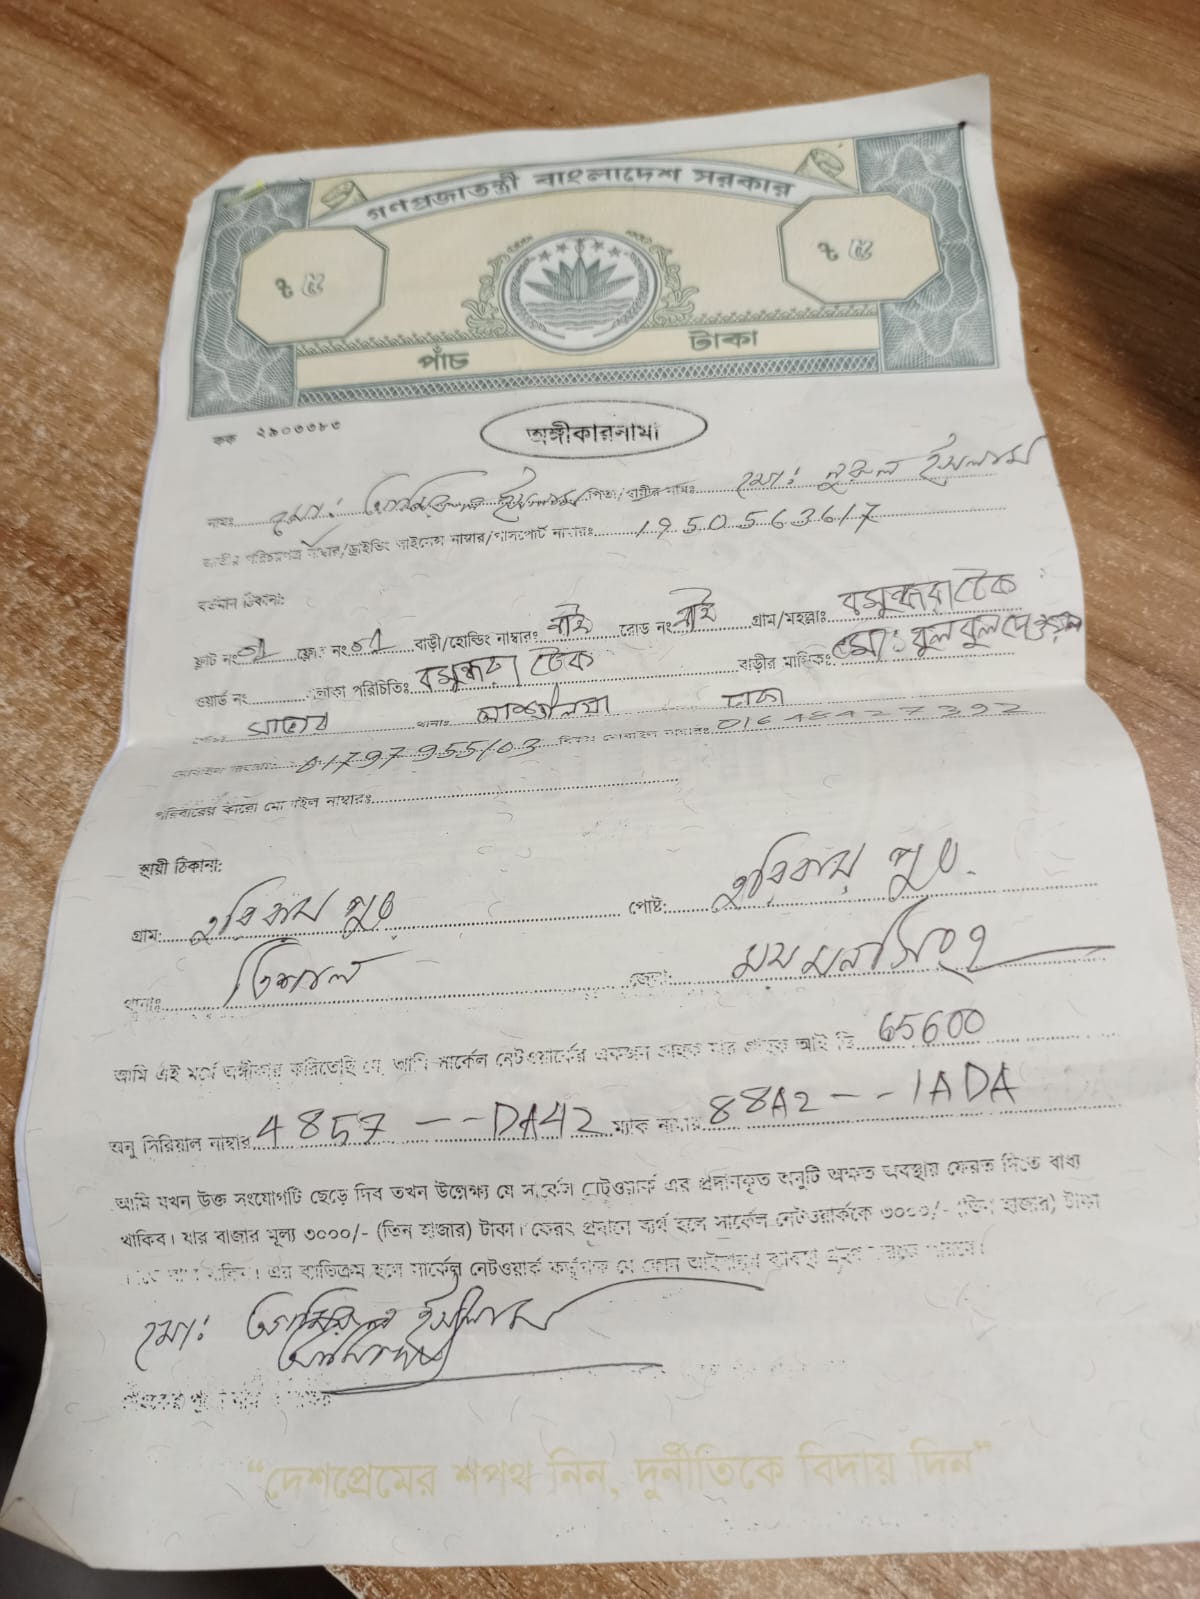 গণপ্রজাতন্ত্রী বাংলাদেশ সরকার
৳ ৫ ৳ ৫
পাঁচ টাকা
কক ২৯০৩৩৮৩
অঙ্গীকারনামা
নামঃ মো: ইসলাম পিতা/স্বামীর নামঃ মো: নুরুল ইসলাম
জাতীয় পরিচয়পত্র নাম্বার/ড্রাইভিং লাইসেন্স নাম্বার/পাসপোর্ট নাম্বারঃ 1950563617
বর্তমান ঠিকানা:
ফ্লাট নং ফ্লোর নং বাড়ী/হোল্ডিং নাম্বারঃ নাই রোড নং নাই গ্রাম/মহল্লাঃ বসুন্ধরা টেক
ওয়ার্ড নং পরিচিতিঃ বসুন্ধরা টেক বাড়ীর মালিকঃ মোঃ বুলবুল দেওয়ান
থানাঃ আশুলিয়া ঢাকা
01797955103 01648427392
পরিবারের কারো মোবাইল নাম্বারঃ
স্থায়ী ঠিকানা:
গ্রাম: হরিরামপুর পোষ্ট: হরিরামপুর
থানাঃ ত্রিশাল জেলা: ময়মনসিংহ
আমি এই মর্মে অঙ্গীকার করিতেছি যে, আমি সার্কেল নেটওয়ার্কের একজন গ্রাহক যার গ্রাহক আই ডি 65600
অনু সিরিয়াল নাম্বার 4857 --DA42 ম্যাক নাম্বার 88A2--1ADA
আমি যখন উক্ত সংযোগটি ছেড়ে দিব তখন উল্লেক্ষ্য যে সার্কেল নেটওয়ার্ক এর প্রদানকৃত অনুটি অক্ষত অবস্থায় ফেরত দিতে বাধ্য
থাকিব। যার বাজার মূল্য ৩০০০/- (তিন হাজার) টাকা। ফেরৎ প্রদানে ব্যর্থ হলে সার্কেল নেটওয়ার্ককে ৩০০০/- (তিন হাজার) টাকা
এর ব্যতিক্রম হলে সার্কেল নেটওয়ার্ক কর্তৃপক্ষ যে কোন আইনানুগ ব্যবস্থা গ্রহণ করতে পারবে।
মো: ইসলাম
“দেশপ্রেমের শপথ নিন, দুর্নীতিকে বিদায় দিন”